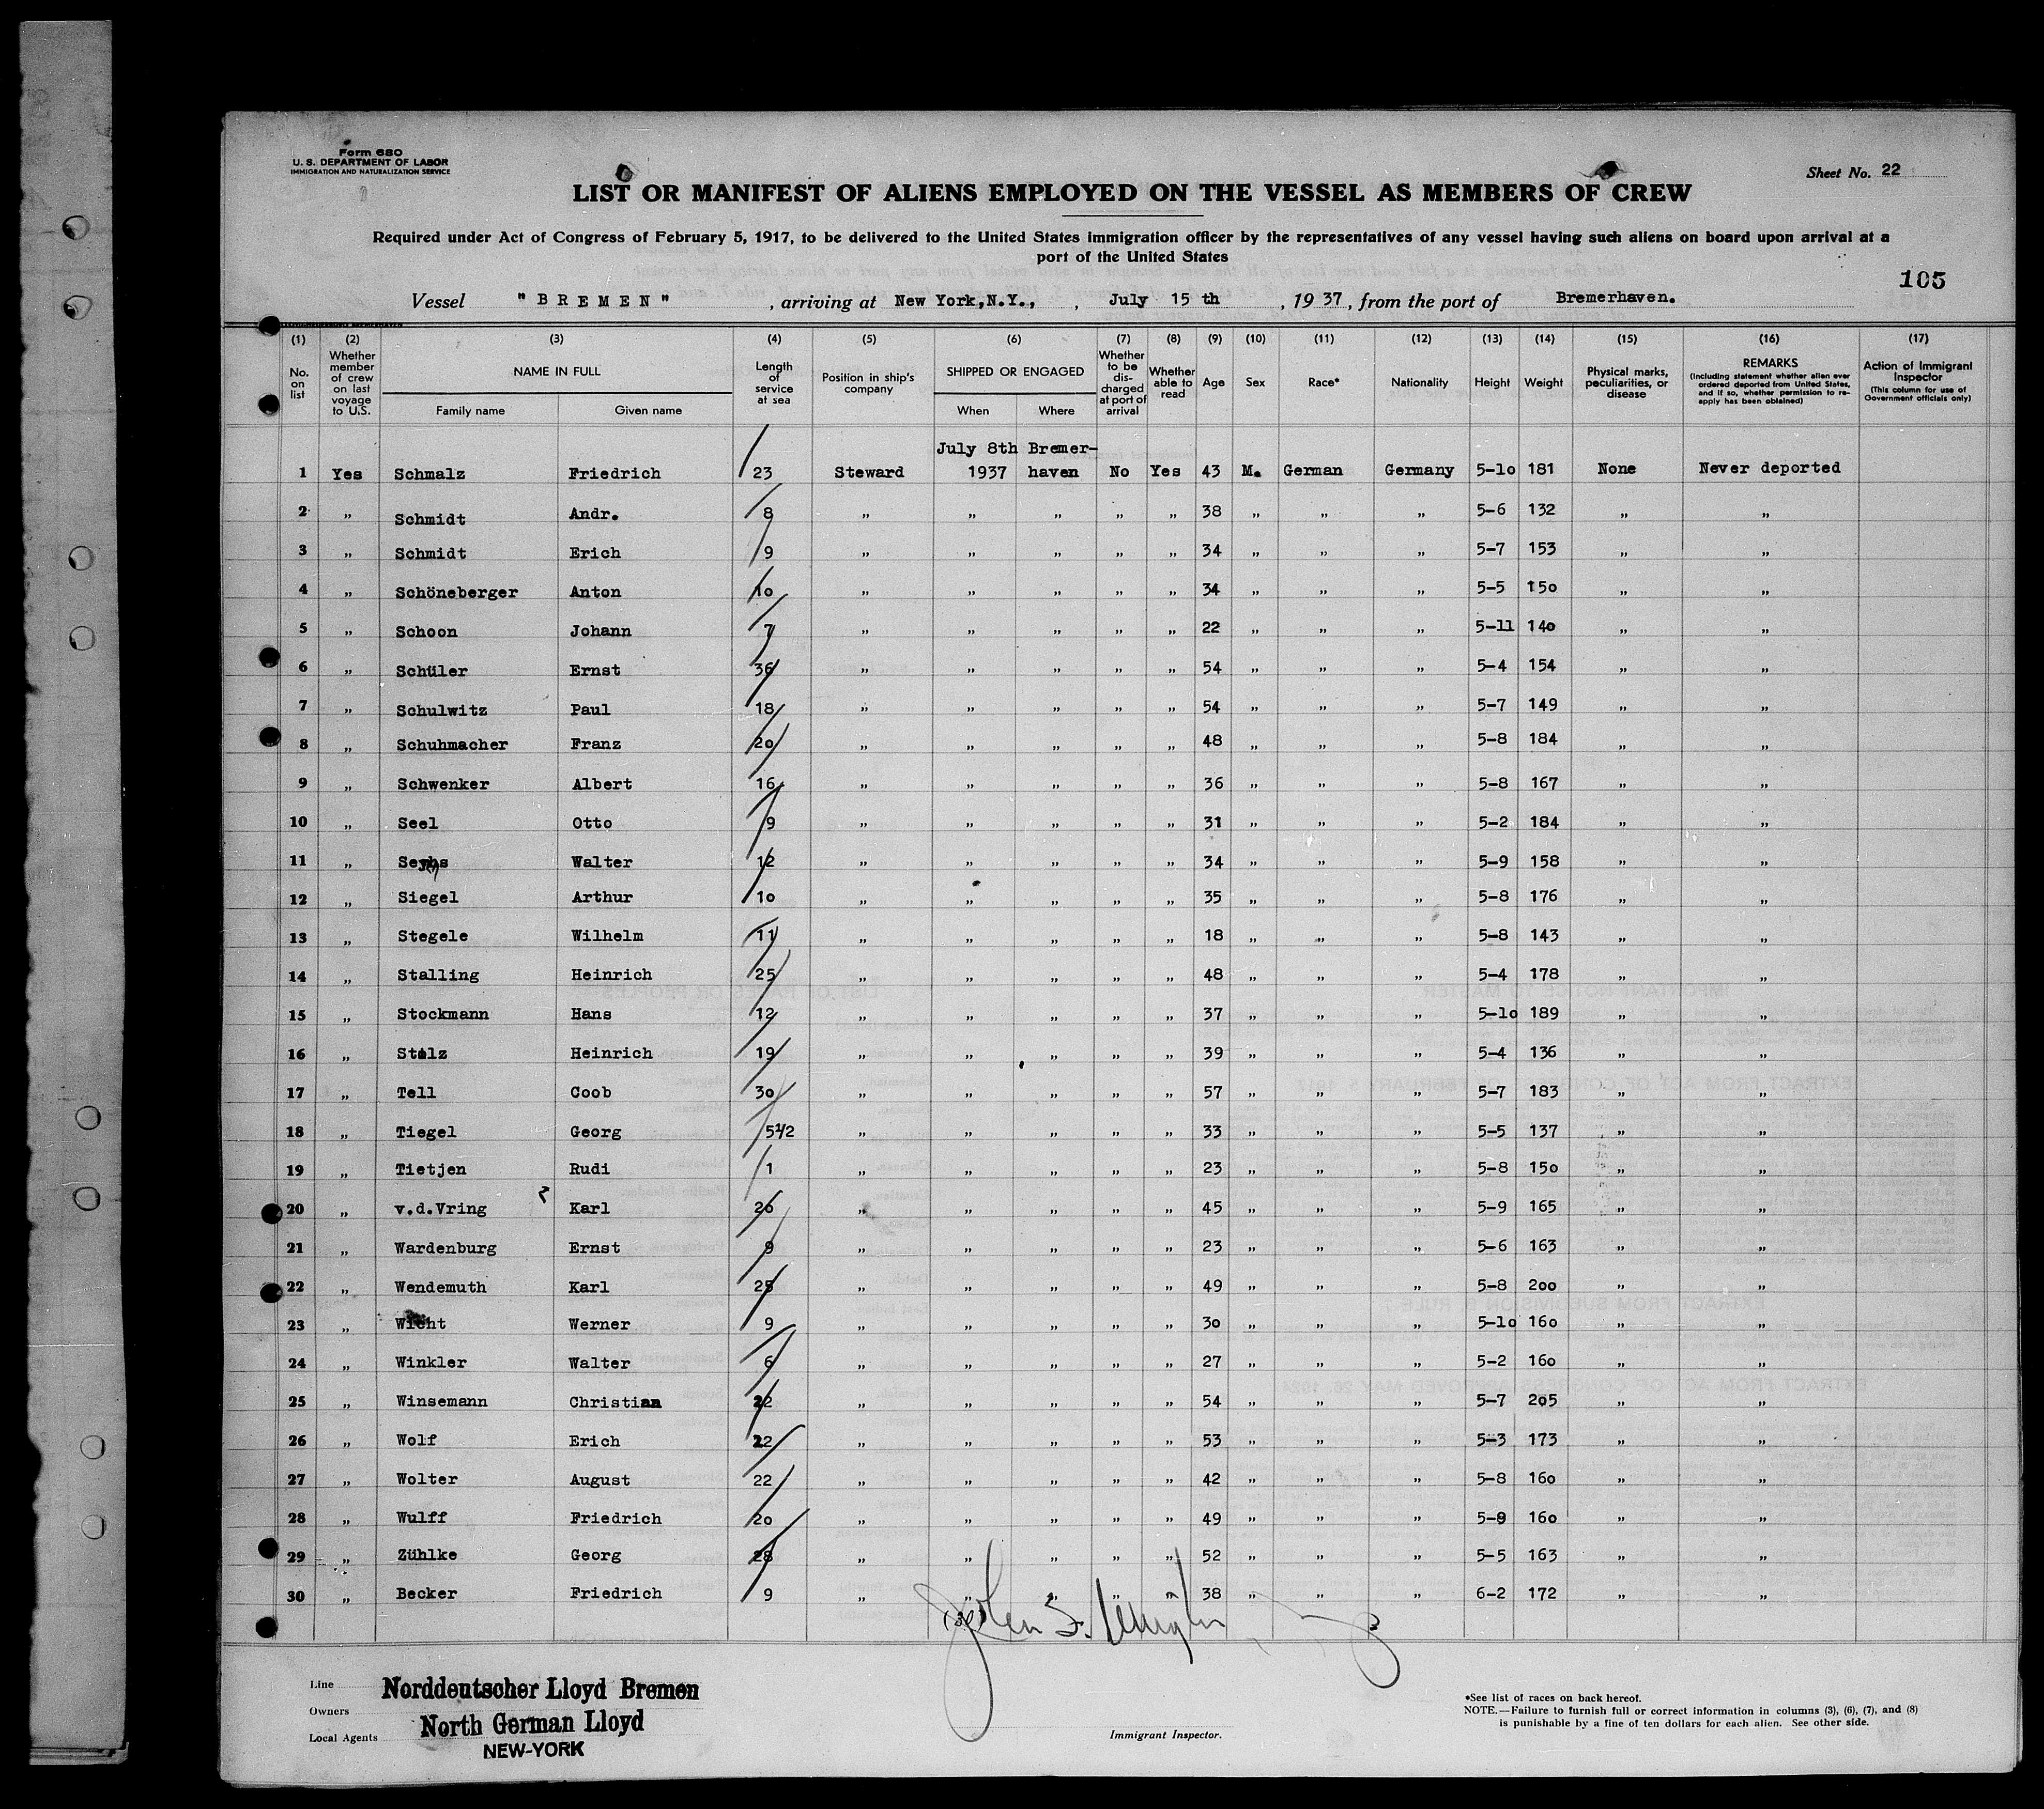 Form 680
U. S. DEPARTMENT OF LABOR
IMMIGRATION AND NATURALIZATION SERVICE
Sheet No. 22
LIST OR MANIFEST OF ALIENS EMPLOYED ON THE VESSEL AS MEMBERS OF CREW
Required under Act of Congress of February 5, 1917, to be delivered to the United States immigration officer by the representatives of any vessel having such aliens on board upon arrival at a
port of the United States
105
Vessel "BREMEN", arriving at New York,N.Y., , July 15 th , 1937, from the port of Bremerhaven.
(1) (2) (3) (4) (5) (6) (7) (8) (9) (10) (11) (12) (13) (14) (15) (16) (17)
No. on list
Whether member of crew on last voyage to U.S.
NAME IN FULL
Family name Given name
Length of service at sea
Position in ship's company
SHIPPED OR ENGAGED
When Where
Whether to be discharged at port of arrival
Whether able to read
Age
Sex
Race*
Nationality
Height
Weight
Physical marks, peculiarities, or disease
REMARKS
(Including statement whether alien ever ordered deported from United States, and if so, whether permission to reapply has been obtained)
Action of Immigrant Inspector
(This column for use of Government officials only)
July 8th Bremer-
1 Yes Schmalz Friedrich 23 Steward 1937 haven No Yes 43 M. German Germany 5-10 181 None Never deported
2 „ Schmidt Andr. 8 „ „ „ „ „ 38 „ „ „ 5-6 132 „ „
3 „ Schmidt Erich 9 „ „ „ „ „ 34 „ „ „ 5-7 153 „ „
4 „ Schöneberger Anton 10 „ „ „ „ „ 34 „ „ „ 5-5 150 „ „
5 „ Schoon Johann 7 „ „ „ „ „ 22 „ „ „ 5-11 140 „ „
6 „ Schüler Ernst 36 „ „ „ „ „ 54 „ „ „ 5-4 154 „ „
7 „ Schulwitz Paul 18 „ „ „ „ „ 54 „ „ „ 5-7 149 „ „
8 „ Schuhmacher Franz 20 „ „ „ „ „ 48 „ „ „ 5-8 184 „ „
9 „ Schwenker Albert 16 „ „ „ „ „ 36 „ „ „ 5-8 167 „ „
10 „ Seel Otto 9 „ „ „ „ „ 31 „ „ „ 5-2 184 „ „
11 „ Walter 12 „ „ „ „ „ 34 „ „ „ 5-9 158 „ „
12 „ Siegel Arthur 10 „ „ „ „ „ 35 „ „ „ 5-8 176 „ „
13 „ Stegele Wilhelm 11 „ „ „ „ „ 18 „ „ „ 5-8 143 „ „
14 „ Stalling Heinrich 25 „ „ „ „ „ 48 „ „ „ 5-4 178 „ „
15 „ Stockmann Hans 12 „ „ „ „ „ 37 „ „ „ 5-10 189 „ „
16 „ Stolz Heinrich 19 „ „ „ „ „ 39 „ „ „ 5-4 136 „ „
17 „ Tell Coob 30 „ „ „ „ „ 57 „ „ „ 5-7 183 „ „
18 „ Tiegel Georg 5½ „ „ „ „ „ 33 „ „ „ 5-5 137 „ „
19 „ Tietjen Rudi 1 „ „ „ „ „ 23 „ „ „ 5-8 150 „ „
20 „ v.d.Vring Karl 26 „ „ „ „ „ 45 „ „ „ 5-9 165 „ „
21 „ Wardenburg Ernst 9 „ „ „ „ „ 23 „ „ „ 5-6 163 „ „
22 „ Wendemuth Karl 25 „ „ „ „ „ 49 „ „ „ 5-8 200 „ „
23 „ Wicht Werner 9 „ „ „ „ „ 30 „ „ „ 5-10 160 „ „
24 „ Winkler Walter 6 „ „ „ „ „ 27 „ „ „ 5-2 160 „ „
25 „ Winsemann Christian 22 „ „ „ „ „ 54 „ „ „ 5-7 205 „ „
26 „ Wolf Erich 22 „ „ „ „ „ 53 „ „ „ 5-3 173 „ „
27 „ Wolter August 22 „ „ „ „ „ 42 „ „ „ 5-8 160 „ „
28 „ Wulff Friedrich 20 „ „ „ „ „ 49 „ „ „ 5-9 160 „ „
29 „ Zühlke Georg 28 „ „ „ „ „ 52 „ „ „ 5-5 163 „ „
30 „ Becker Friedrich 9 „ „ „ „ „ 38 „ „ „ 6-2 172 „ „
(30)
Line Norddeutscher Lloyd Bremen
Owners North German Lloyd
Local Agents NEW-YORK
Immigrant Inspector.
*See list of races on back hereof.
NOTE.—Failure to furnish full or correct information in columns (3), (6), (7), and (8)
is punishable by a fine of ten dollars for each alien. See other side.